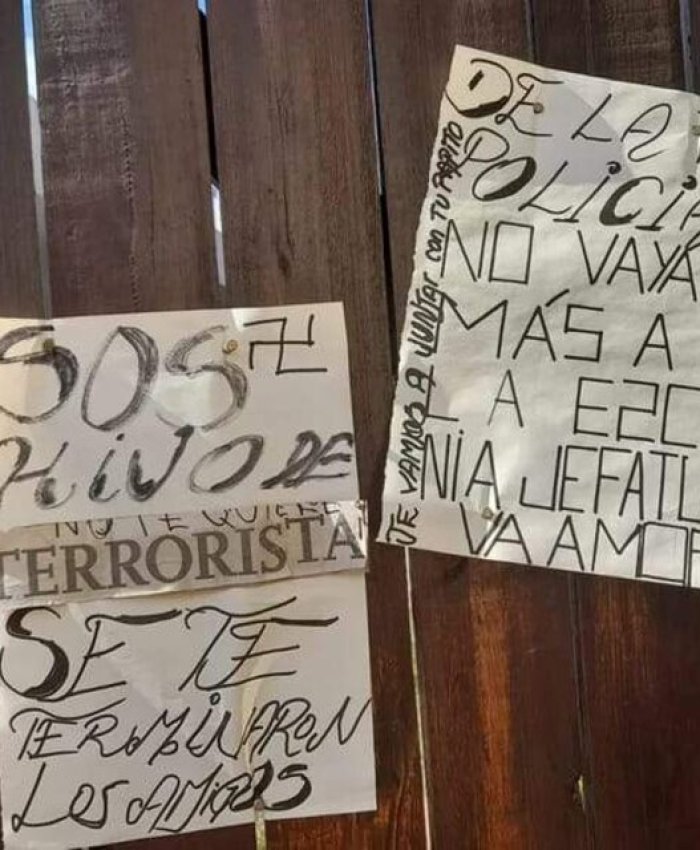 SOS
HIJO DE
NO TE QUIERE
TERRORISTA
SE TE
TERMINARON
LOS AMIGOS
DE LA
POLICIA
NO VAYA
MÁS A
LA EZC
NIA JEFATU
VA A MOR
TE VAMOS A JUNTAR CON TU PAPITO